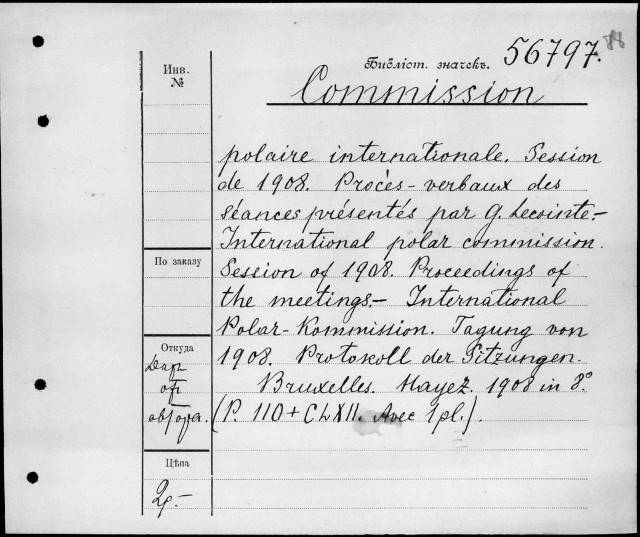 Инв.
№
Библіот. значекъ. 56797.
Commission
polaire internationale. Session
de 1908. Procès-verbaux des
séances présentés par G. Lecointe.—
International polar commission.
Session of 1908. Proceedings of
the meetings.— International
Polar-Kommission. Tagung von
1908. Protokoll der Sitzungen.
Bruxelles. Hayez. 1908 in 8°.
(P. 110 + CLXII. Avec 1 pl.).
По заказу
Откуда
Дар
от
автора.
Цѣна
2р.—